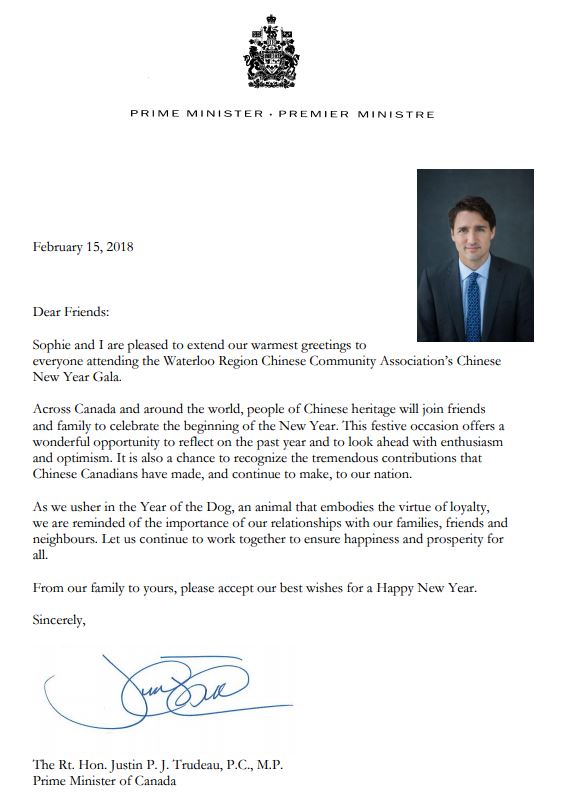 PRIME MINISTER · PREMIER MINISTRE
February 15, 2018
Dear Friends:
Sophie and I are pleased to extend our warmest greetings to
everyone attending the Waterloo Region Chinese Community Association’s Chinese
New Year Gala.
Across Canada and around the world, people of Chinese heritage will join friends
and family to celebrate the beginning of the New Year. This festive occasion offers a
wonderful opportunity to reflect on the past year and to look ahead with enthusiasm
and optimism. It is also a chance to recognize the tremendous contributions that
Chinese Canadians have made, and continue to make, to our nation.
As we usher in the Year of the Dog, an animal that embodies the virtue of loyalty,
we are reminded of the importance of our relationships with our families, friends and
neighbours. Let us continue to work together to ensure happiness and prosperity for
all.
From our family to yours, please accept our best wishes for a Happy New Year.
Sincerely,
The Rt. Hon. Justin P. J. Trudeau, P.C., M.P.
Prime Minister of Canada